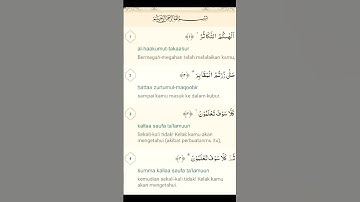 اَلْهٰىكُمُ التَّكَاثُرُۙ ﴿١﴾
1
al-haakumut-takaasur
Bermegah-megahan telah melalaikan kamu,
حَتّٰى زُرْتُمُ الْمَقَابِرَۗ ﴿٢﴾
2
hattaa zurtumul-maqoobir
sampai kamu masuk ke dalam kubur.
كَلَّا سَوْفَ تَعْلَمُوْنَۙ ﴿٣﴾
3
kallaa saufa ta'lamuun
Sekali-kali tidak! Kelak kamu akan
mengetahui (akibat perbuatanmu itu),
ثُمَّ كَلَّا سَوْفَ تَعْلَمُوْنَۗ ﴿٤﴾
4
summa kallaa saufa ta'lamuun
kemudian sekali-kali tidak! Kelak kamu
akan mengetahui.